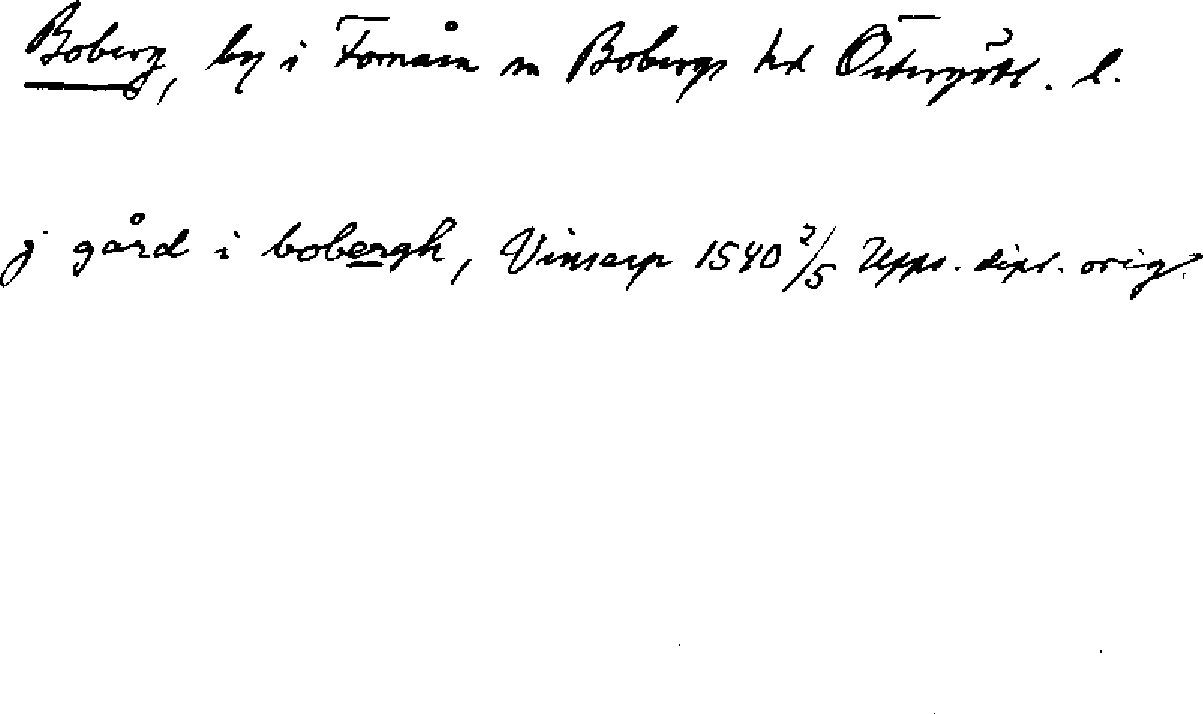 Boberg, by i Fornåsa sn Bobergs hd Östergötl. l.
j gård i bobergh, Vinsarp 1540 2/5 Upps. dipl. orig.